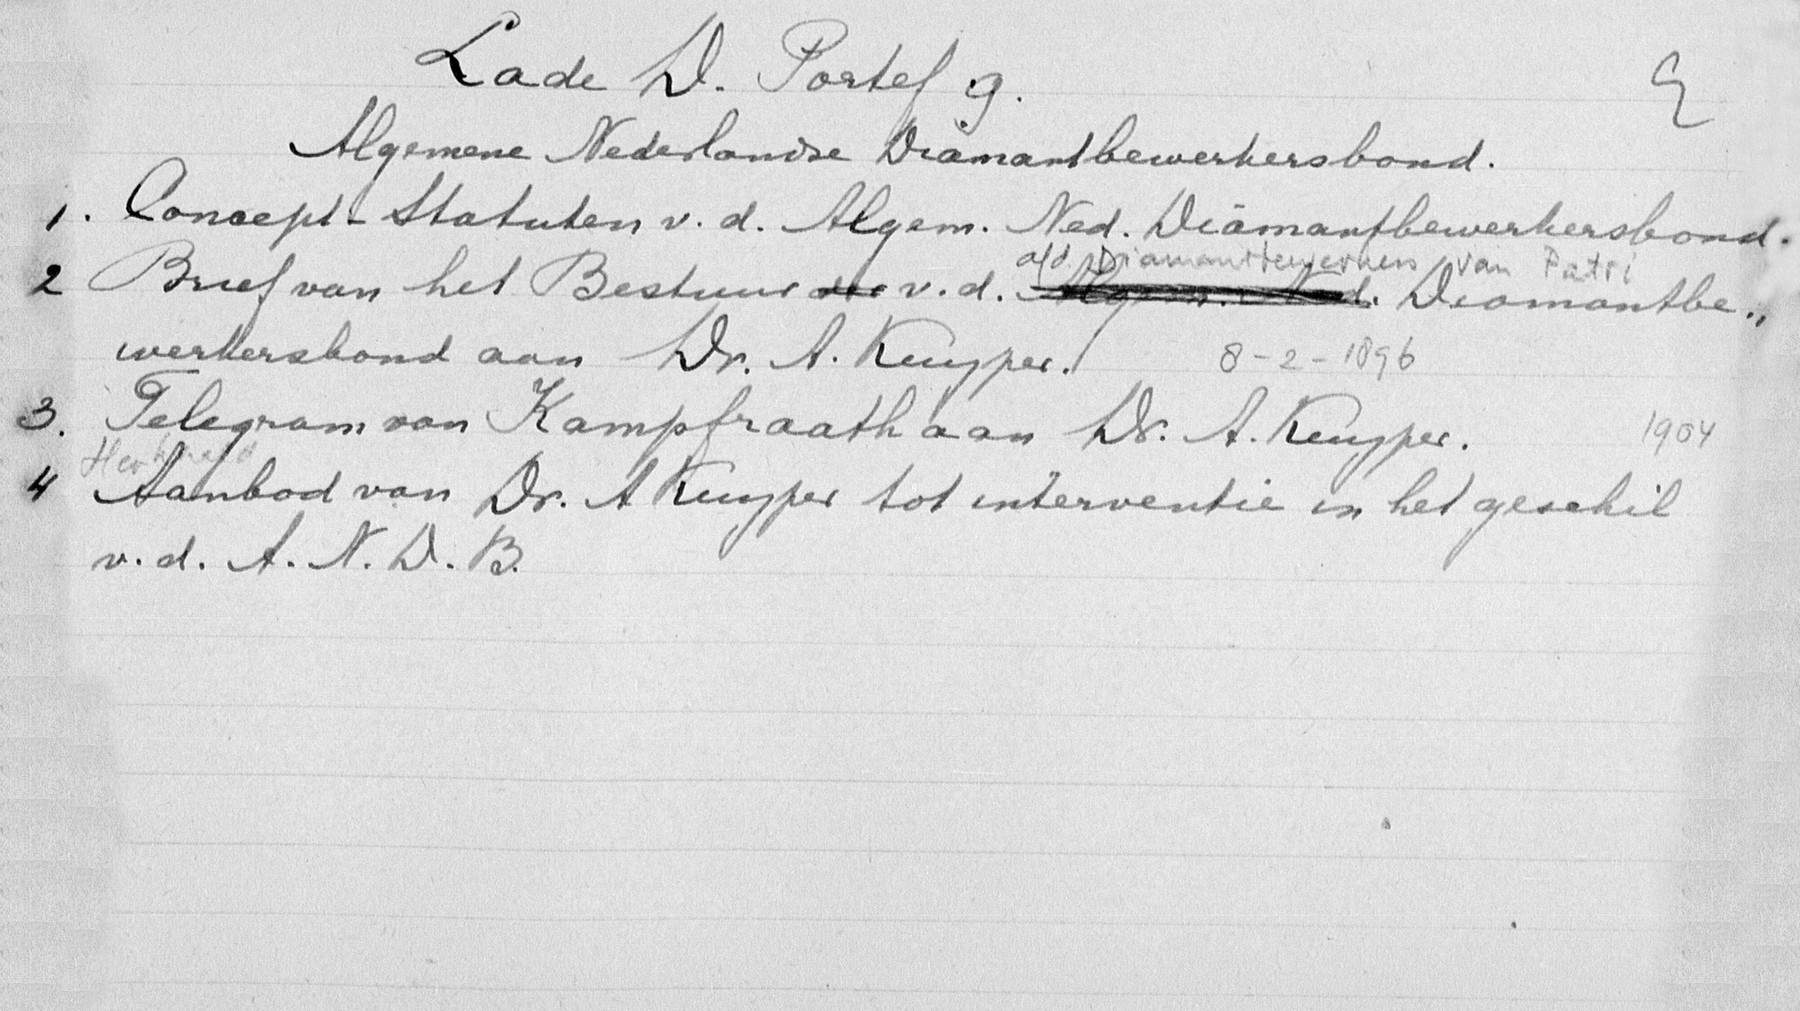 Lade D. Portef 9.
Algemene Nederlandse Diamantbewerkersbond.
1. Concept-Statuten v. d. Algem. Ned. Diamantbewerkersbond.
afd. Diamantbewerkers van Patri
2 Brief van het Bestuur der v. d. Algem. Ned. Diamantbe„
werkersbond aan Dr. A. Kuyper. 8-2-1896
3. Telegram van Kampfraath aan Dr. A. Kuyper. 1904
Herhaald
4 Aanbod van Dr. A Kuyper tot interventie in het geschil
v. d. A. N. D. B.